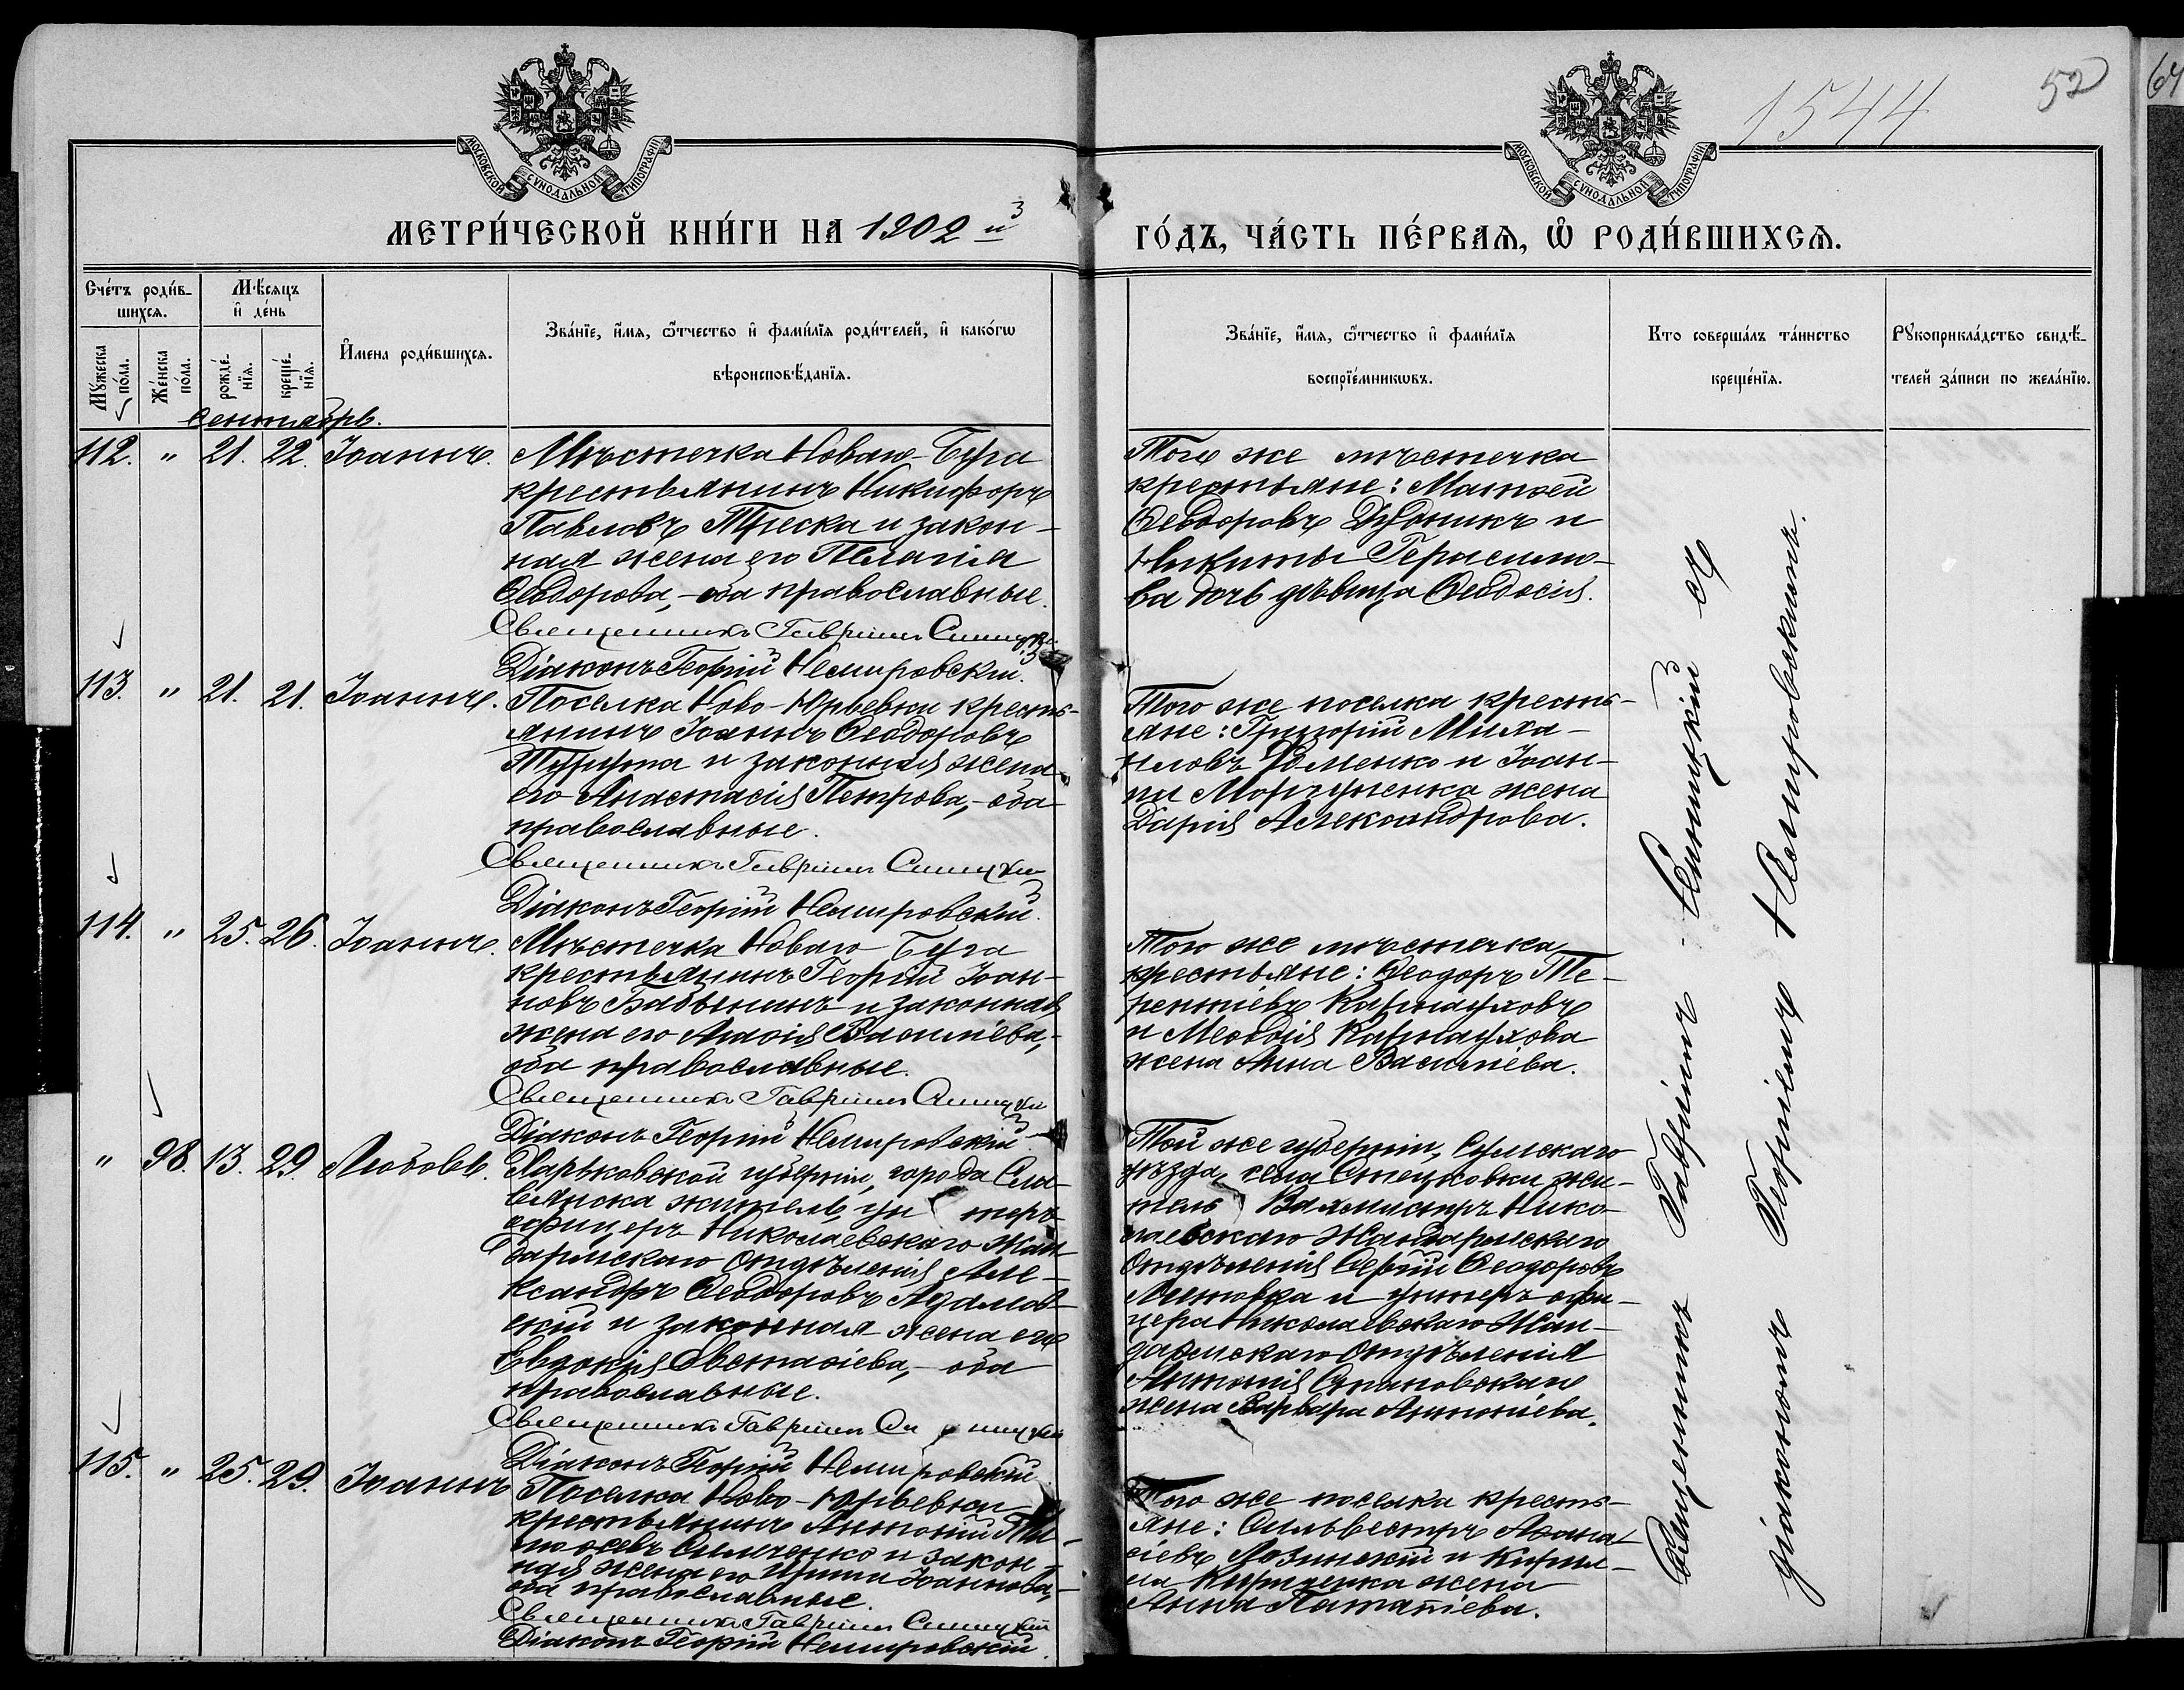 1544
52
МОСКОВСКОЙ СѴНОДАЛЬНОЙ ТИПОГРАФІИ
МОСКОВСКОЙ СѴНОДАЛЬНОЙ ТИПОГРАФІИ
МЕТРИ́ЧЕСКОЙ КНИ́ГИ НА 1902 й 3
ГО́ДЪ, ЧА́СТЬ ПЕ́РВАѦ, Ѡ РОДИ́ВШИХСѦ.
Сче́тъ роди́в-
шихсѧ.
Мѣ́сѧцъ
и҆ де́нь
Мꙋ́жеска по́ла.
Же́нска по́ла.
рожде́-нїѧ.
креще́-нїѧ.
И҆мена роди́вшихсѧ.
Зва́нїе, и҆́мѧ, ѻ҆́тчество и҆ фами́лїѧ роди́телей, и҆ како́гѡ
вѣроисповѣ́данїѧ.
Зва́нїе, и҆́мѧ, ѻ҆́тчество и҆ фами́лїѧ
воспрїе́мникѡвъ.
Кто соверша́лъ та́инство
креще́нїѧ.
Рꙋкоприкла́дство свидѣ́-
телей за́писи по жела́нїю.
Сентябрь.
112. " 21. 22. Іоаннъ.
Мѣстечка Новаго-Буга
крестьянинъ Никифоръ
Павловъ и закон-
ная жена его Пелагія
Ѳеодорова,-оба православные.
Священникъ Гавріилъ Синицкій
Діаконъ Георгій Немировскій.
Того же мѣстечка
крестьяне: Матѳей
Ѳеодоровъ и
Никиты Герасимо-
ва дочь дѣвица Ѳеодосія.
113. " 21. 21. Іоаннъ.
Поселка Ново-Юрьевки кресть-
янинъ Іоаннъ Ѳеодоровъ
и законная жена
его Анастасія Петрова,-оба
православные.
Священникъ Гавріилъ Синицкій
Діаконъ Георгій Немировскій.
Того же поселка кресть-
яне: Григорій Миха-
иловъ и Іоан-
на жена
Дарія Александрова.
114. " 25. 26. Іоаннъ.
Мѣстечка Новаго Буга
крестьянинъ Георгій Іоан-
новъ Бабенинъ и законная
жена его Васильева,-
оба православные.
Священникъ Гавріилъ Синицкій
Діаконъ Георгій Немировскій
Того же мѣстечка
крестьяне: Ѳеодоръ Те-
рентіевъ Карнауховъ
и Меѳодія Карнаухова
жена Анна Васильева.
" 98. 13. 29. Любовь.
Харьковской губерніи, города Сла-
вянска житель, ун теръ-
офицеръ Николаевскаго Жан-
дармскаго Отдѣленія Але-
ксандръ Ѳеодоровъ Адамов-
скій и законная жена его
Евдокія Евстаѳіева,-оба
православные.
Священникъ Гавріилъ Си ницкій
Діаконъ Георгій Немировскій
Той же губерніи, Сумскаго
уѣзда, села Стецковки жи-
тель Вахмистръ Нико-
лаевскаго Жандармскаго
Отдѣленія Сергій Ѳеодоровъ
и унтеръ офи-
цера Николаевскаго Жан-
дармскаго Отдѣленія
Антонія
жена Варвара Антоніева.
115. " 25. 29. Іоаннъ
Поселка Ново-Юрьевки
крестьянинъ Антоній Ти-
моѳевъ и закон-
ная жена его Ирина Іоаннова,-
оба православные.
Священникъ Гавріилъ Синицкій
Діаконъ Георгій Немировскій.
Того же поселка кресть-
яне: Сильвестръ Аѳана-
сіевъ Лозинскій и Кирил-
ла жена
Анна Патапіева.
Священникъ Гавріилъ Синицкій съ
діакономъ Георгіемъ Немировскимъ.